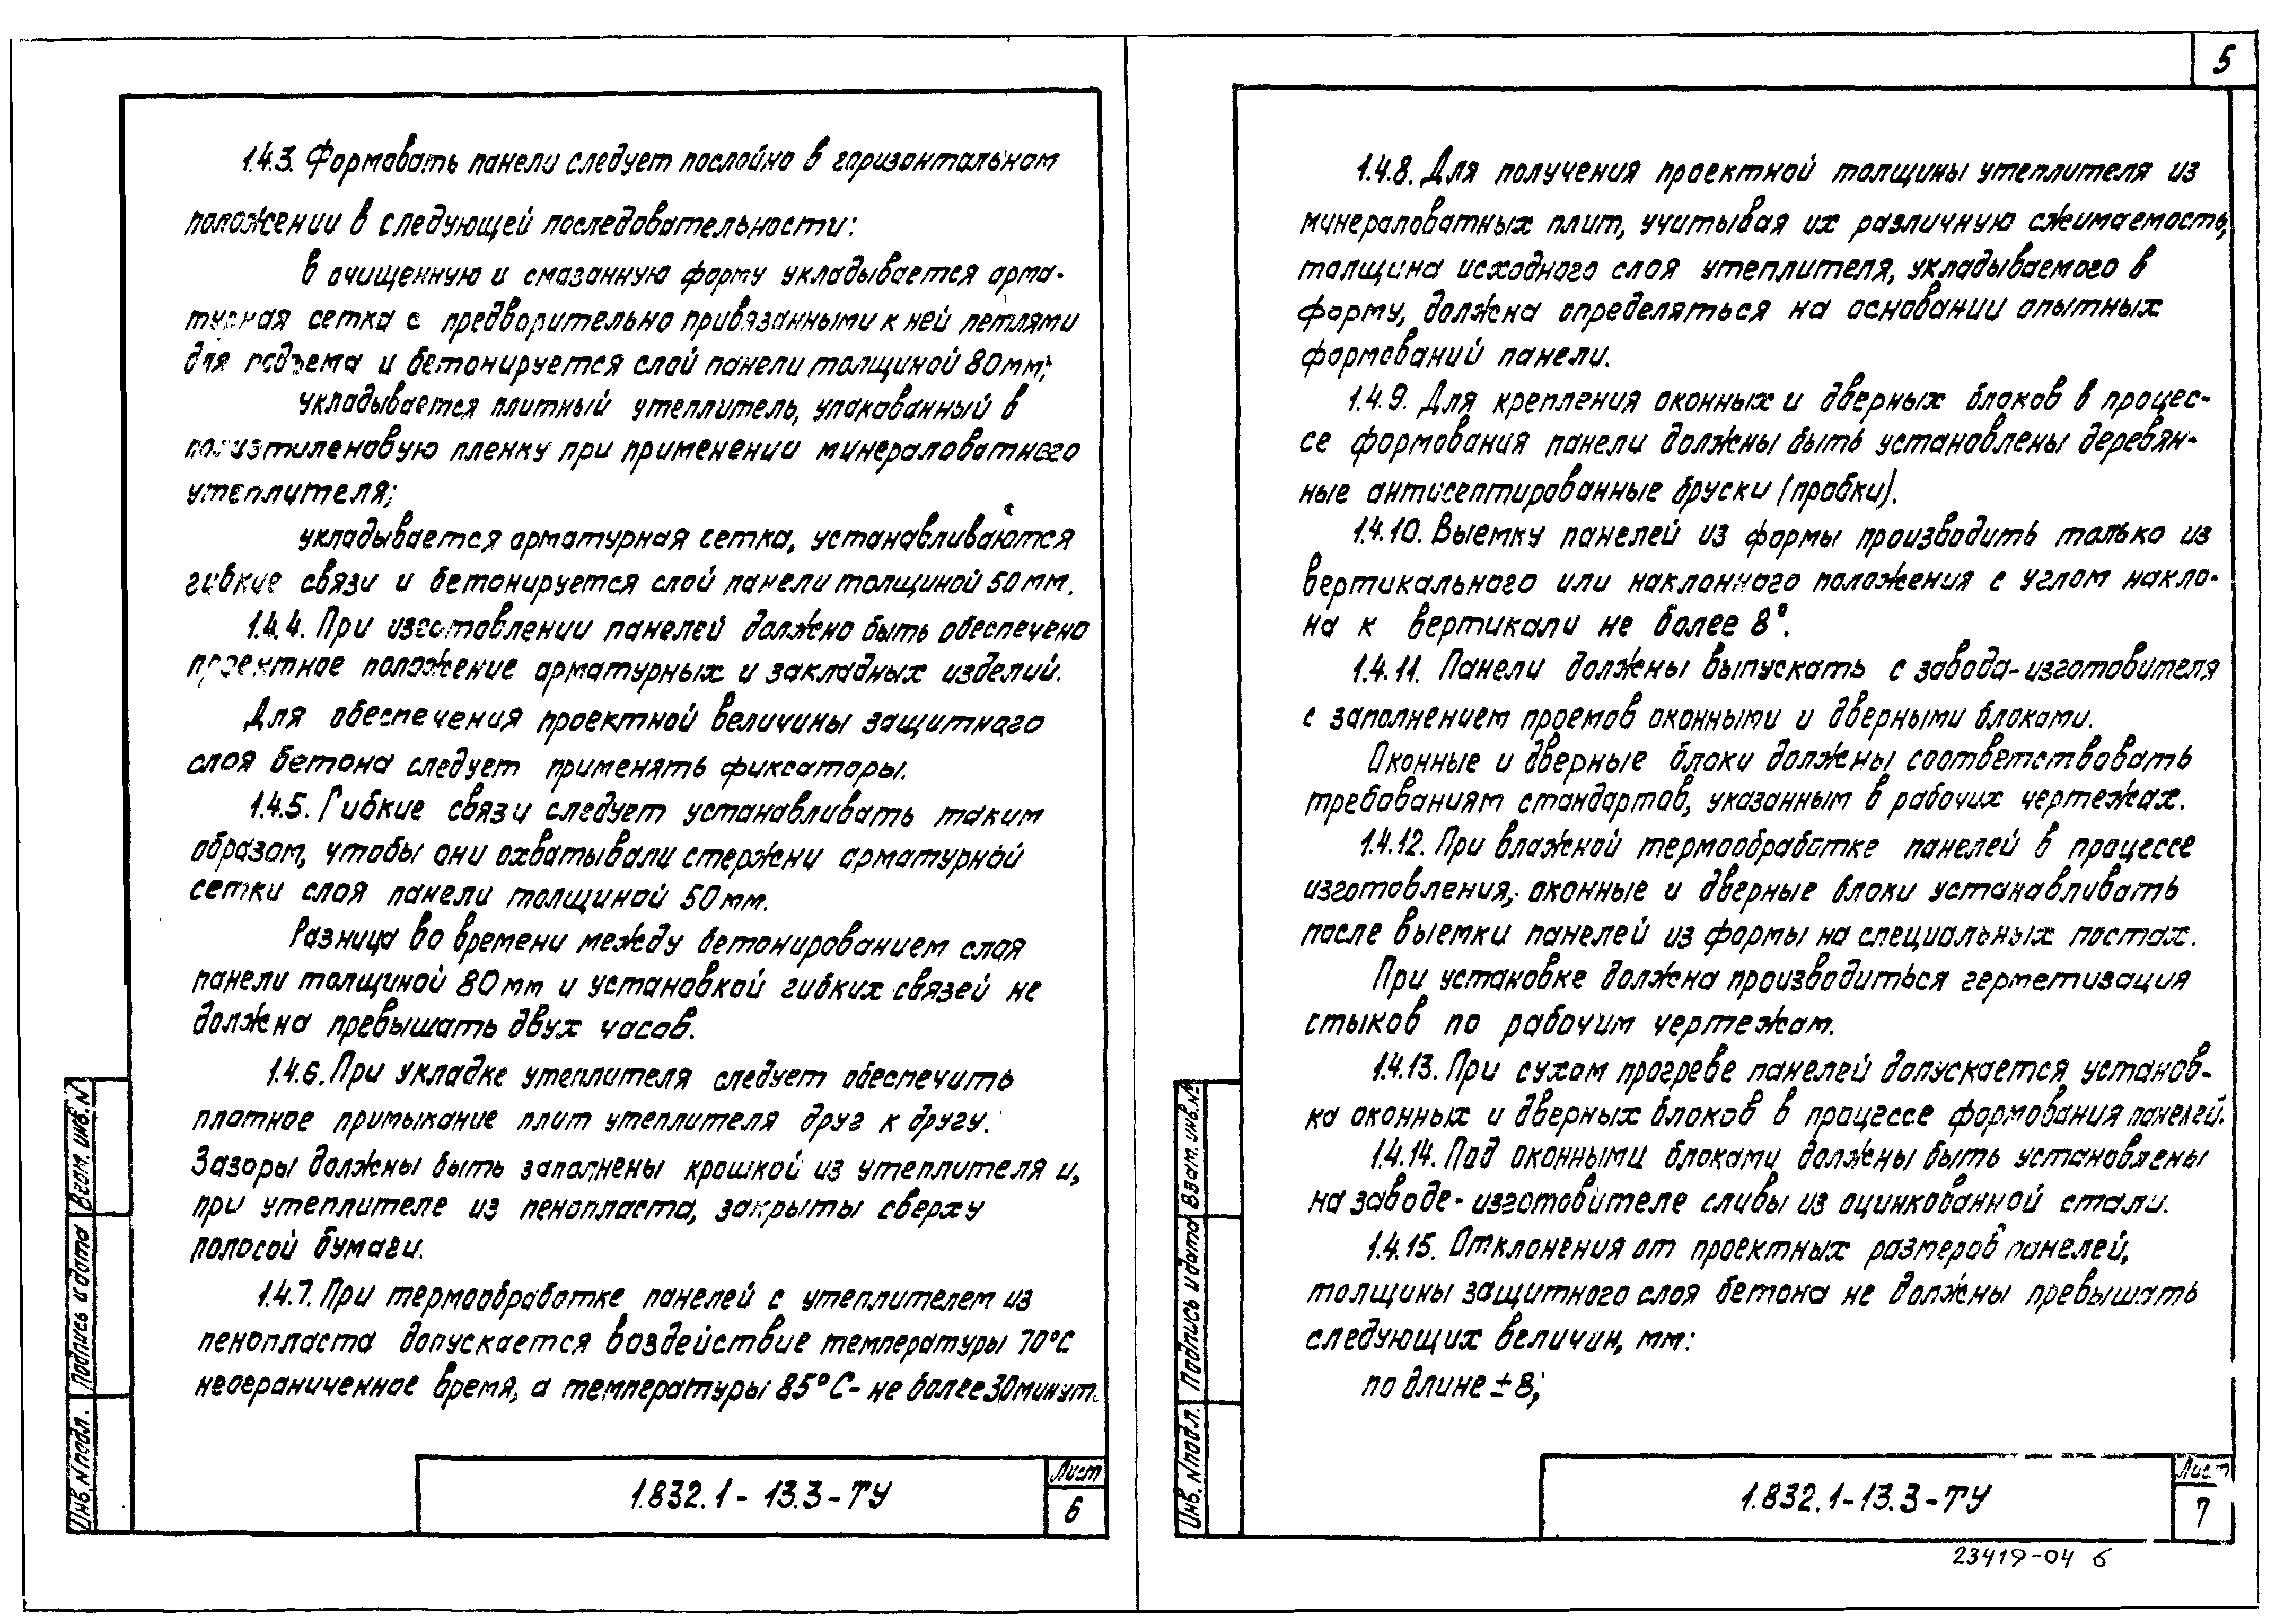 5
1.4.3. Формовать панели следует послойно в горизонтальном
положении в следующей последовательности:
в очищенную и смазанную форму укладывается арма-
турная сетка с предворительно привязанными к ней петлями
для подъема и бетонируется слой панели толщиной 80мм;
укладывается плитный утеплитель, упакованный в
полиэтиленовую пленку при применении минераловатного
утеплителя;
укладывается арматурная сетка, устанавливаются
гибкие связи и бетонируется слой панели толщиной 50мм.
1.4.4. При изготовлении панелей должно быть обеспечено
проектное положение арматурных и закладных изделий.
Для обеспечения проектной величины защитного
слоя бетона следует применять фиксаторы.
1.4.5. Гибкие связи следует устанавливать таким
образом, чтобы они охватывали стержни арматурной
сетки слоя панели толщиной 50мм.
Разница во времени между бетонированием слоя
панели толщиной 80мм и установкой гибких связей не
должна превышать двух часов.
1.4.6. При укладке утеплителя следует обеспечить
плотное примыкание плит утеплителя друг к другу.
Зазоры должны быть заполнены крошкой из утеплителя и,
при утеплителе из пенопласта, закрыты сверху
полосой бумаги.
1.4.7. При термообработке панелей с утеплителем из
пенопласта допускается воздействие температуры 70°С
неограниченное время, а температуры 85°С- не более 30минут.
Инв. N подл. Подпись и дата Взам. инв. N
1.832.1-13.3-ТУ
Лист
6
1.4.8. Для получения проектной толщины утеплителя из
минераловатных плит, учитывая их различную сжимаемость,
толщина исходного слоя утеплителя, укладываемого в
форму, должна определяться на основании опытных
формований панели.
1.4.9. Для крепления оконных и дверных блоков в процес-
се формования панели должны быть установлены деревян-
ные антисептированные бруски (пробки).
1.4.10. Выемку панелей из формы производить только из
вертикального или наклонного положения с углом накло-
на к вертикали не более 8°.
1.4.11. Панели должны выпускать с завода-изготовителя
с заполнением проемов оконными и дверными блоками.
Оконные и дверные блоки должны соответствовать
требованиям стандартов, указанным в рабочих чертежах.
1.4.12. При влажной термообработке панелей в процессе
изготовления, оконные и дверные блоки устанавливать
после выемки панелей из формы на специальных постах.
При установке должна производиться герметизация
стыков по рабочим чертежам.
1.4.13. При сухом прогреве панелей допускается установ-
ка оконных и дверных блоков в процессе формования панелей.
1.4.14. Под оконными блоками должны быть установлены
на заводе-изготовителе сливы из оцинкованной стали.
1.4.15. Отклонения от проектных размеров панелей,
толщины защитного слоя бетона не должны превышать
следующих величин, мм:
по длине ± 8;
Инв. N подл. Подпись и дата Взам. инв. N
1.832.1-13.3-ТУ
Лист
7
23419-04 6